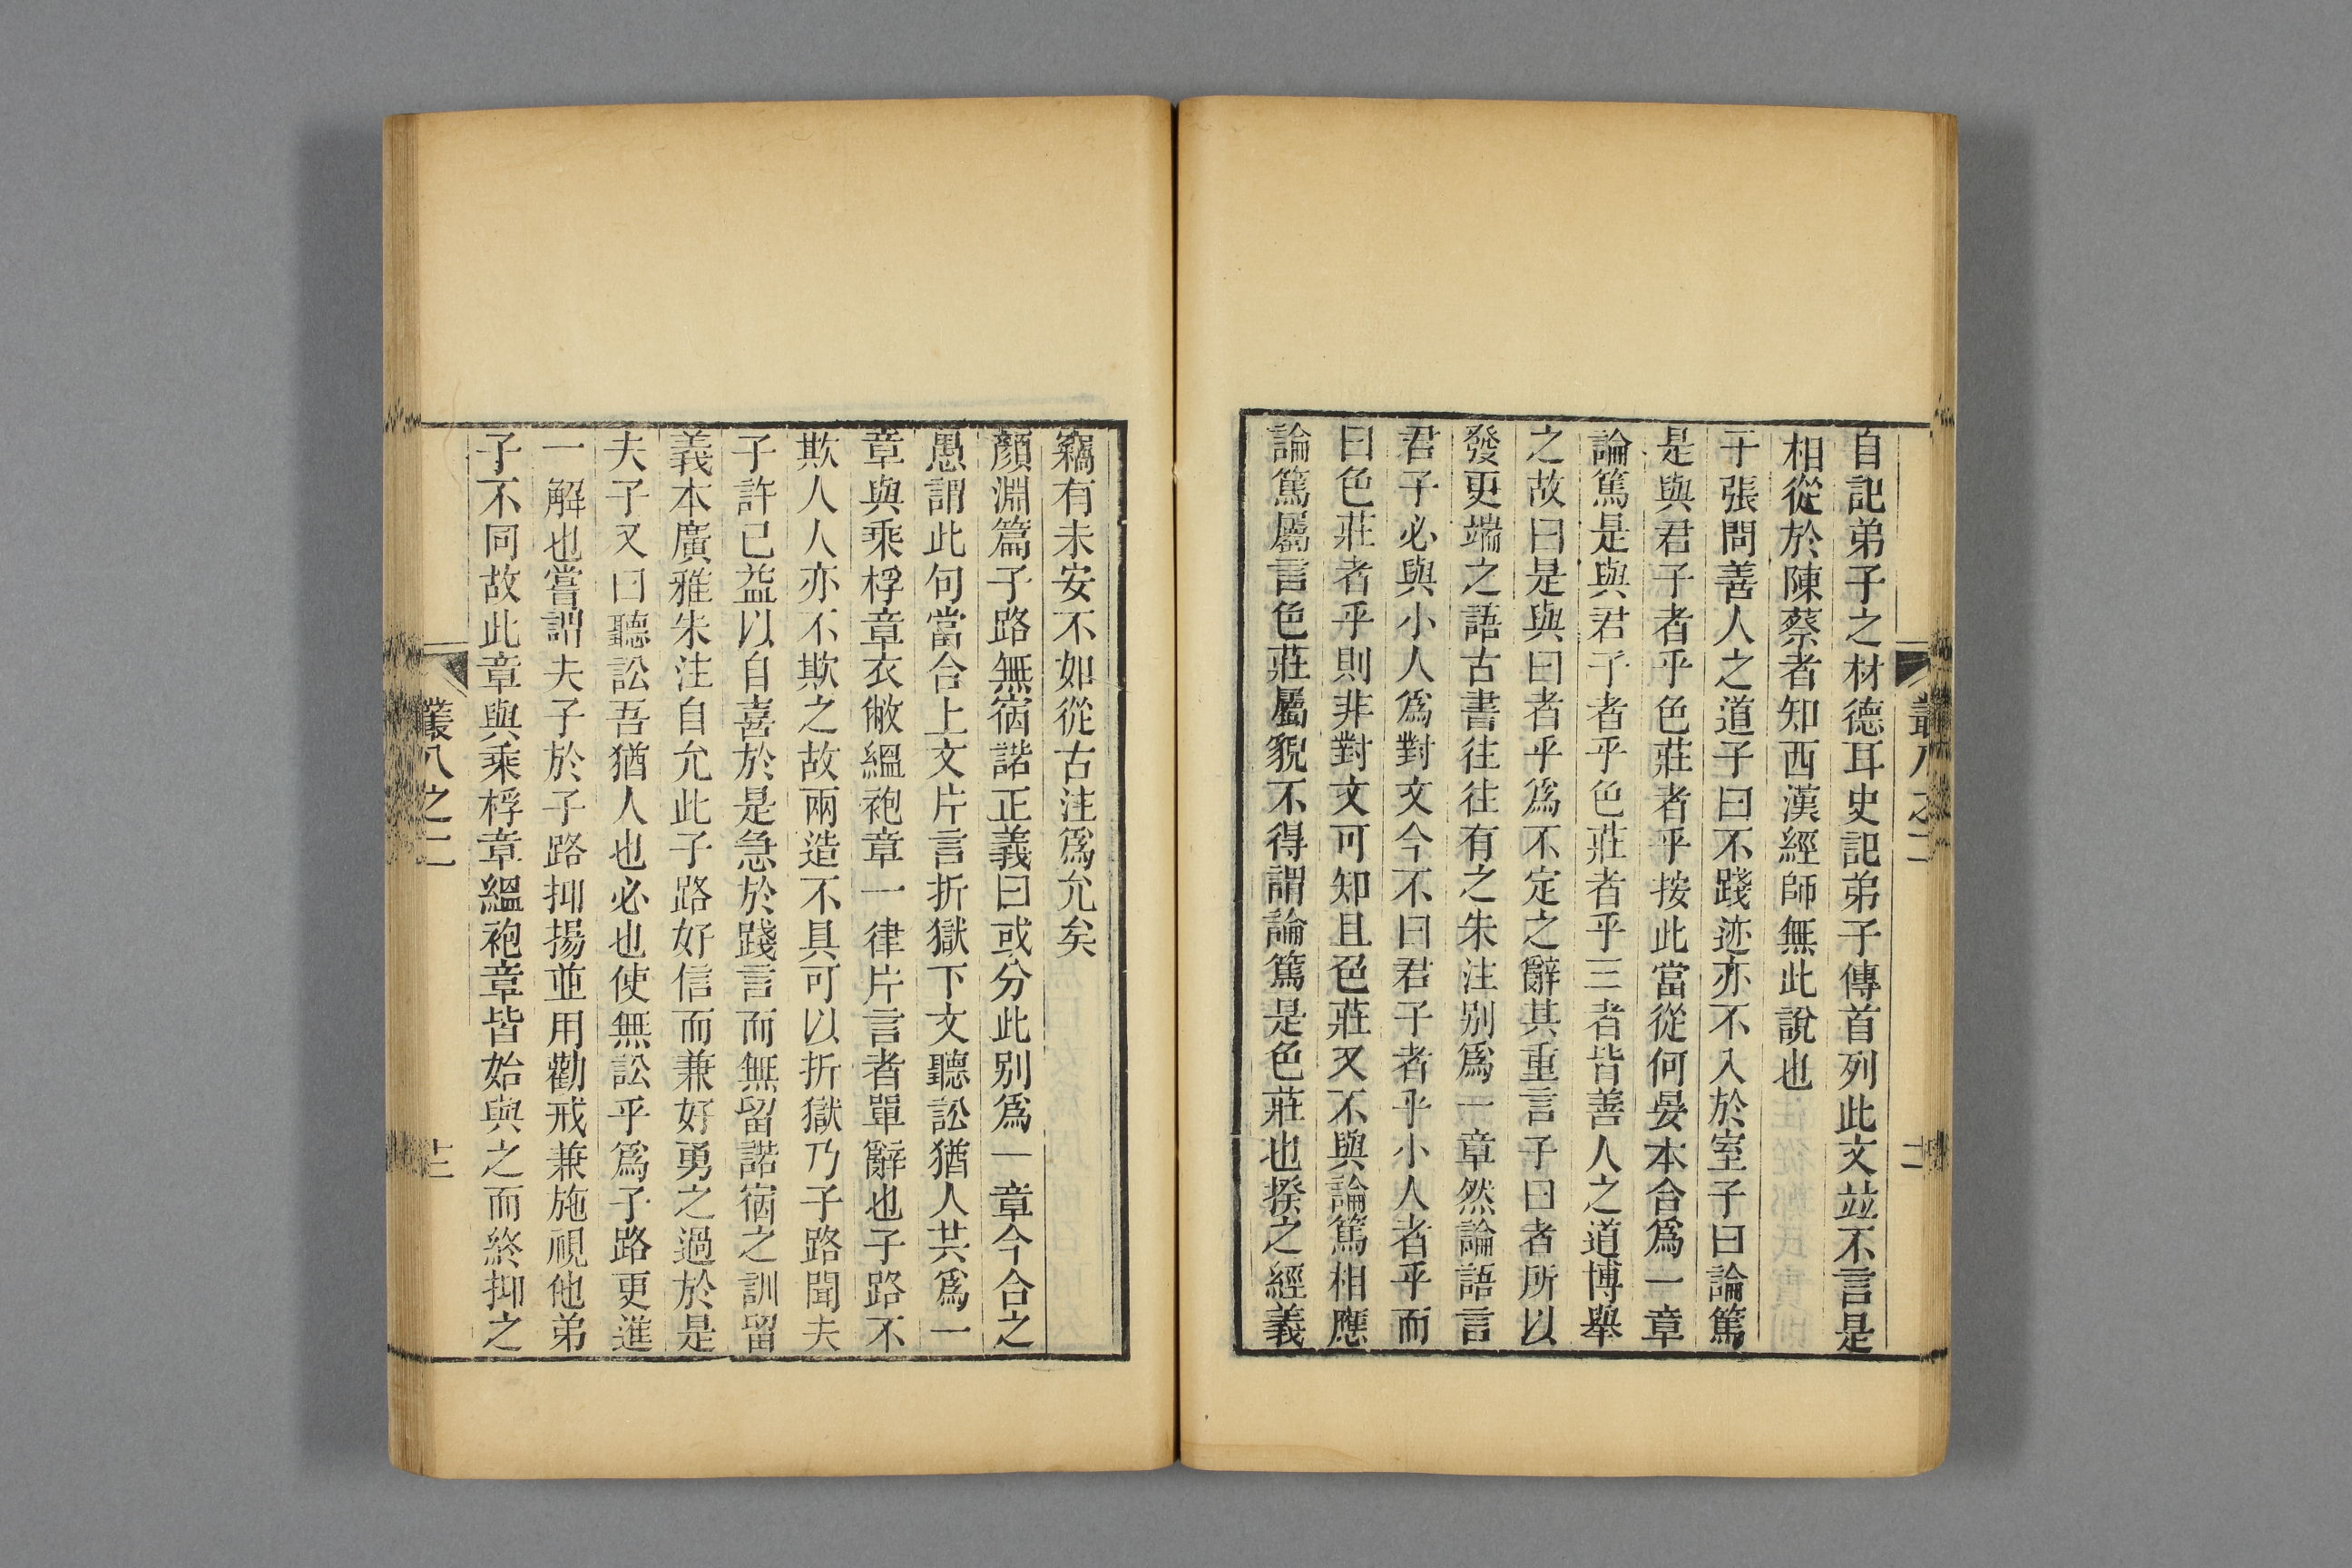 叢八之二
十二
自記弟子之材德耳史記弟子傳首列此文並不言是
相從於陳蔡者知西漢經師無此說也
子張問善人之道子曰不踐迹亦不入於室子曰論篤
是與君子者乎色莊者乎按此當從何晏本合爲一章
論篤是與君子者乎色莊者乎三者皆善人之道博舉
之故曰是與曰者乎爲不定之辭其重言子曰者所以
發更端之語古書往往有之朱注别爲一章然論語言
君子必與小人爲對文今不曰君子者乎小人者乎而
曰色莊者乎則非對文可知且色莊又不與論篤相應
論篤屬言色莊屬貌不得謂論篤是色莊也揆之經義
竊有未安不如從古注爲允矣
顏淵篇子路無宿諾正義曰或分此别爲一章今合之
愚謂此句當合上文片言折獄下文聽訟猶人共爲一
章與乘桴章衣敝縕袍章一律片言者單辭也子路不
欺人人亦不欺之故兩造不具可以折獄乃子路聞夫
子許己益以自喜於是急於踐言而無留諾宿之訓留
義本廣雅朱注自允此子路好信而兼好勇之過於是
夫子又曰聽訟吾猶人也必也使無訟乎爲子路更進
一解也嘗謂夫子於子路抑揚並用勸戒兼施視他弟
子不同故此章與乘桴章縕袍章皆始與之而終抑之
叢八之二
十三